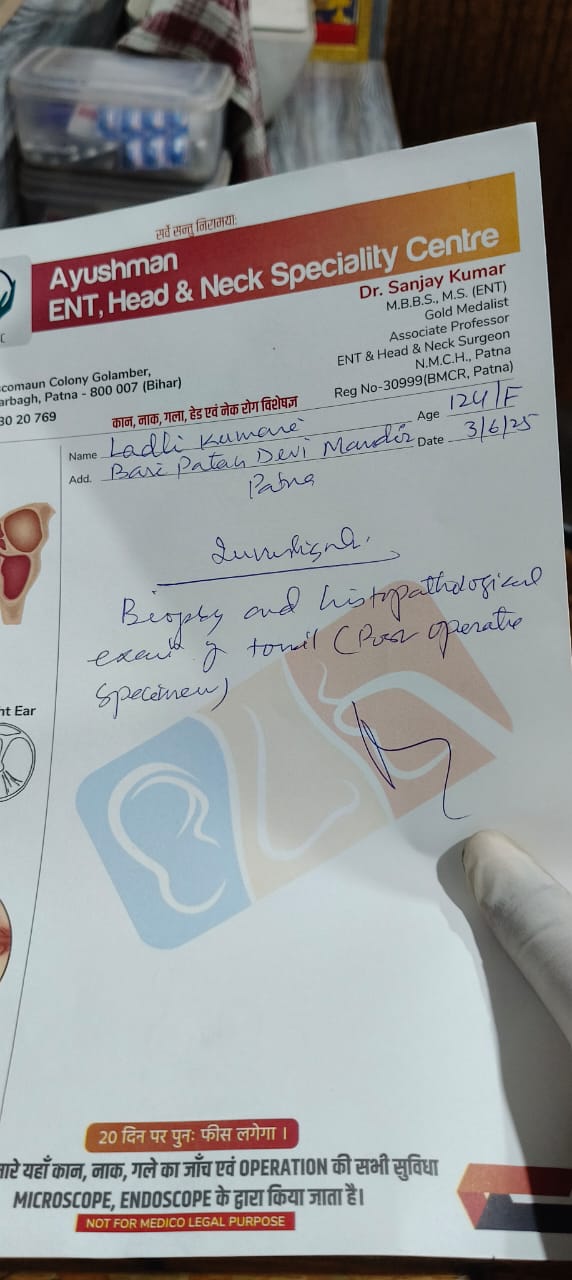 सर्वे सन्तु निरामयाः
Ayushman
ENT, Head & Neck Speciality Centre
Dr. Sanjay Kumar
M.B.B.S., M.S. (ENT)
Gold Medalist
Associate Professor
ENT & Head & Neck Surgeon
N.M.C.H., Patna
Reg No-30999(BMCR, Patna)
comaun Colony Golamber,
arbagh, Patna - 800 007 (Bihar)
30 20 769
कान, नाक, गला, हेड एवं नेक रोग विशेषज्ञ
Name Ladli Kumari Age 12y/F
Add. Bari Patan Devi Mandir Date 3/6/25
Patna
Biopsy and histopathological
exam of tonsil (Post operative
specimen)
ht Ear
20 दिन पर पुनः फीस लगेगा ।
मारे यहाँ कान, नाक, गले का जाँच एवं OPERATION की सभी सुविधा
MICROSCOPE, ENDOSCOPE के द्वारा किया जाता है।
NOT FOR MEDICO LEGAL PURPOSE